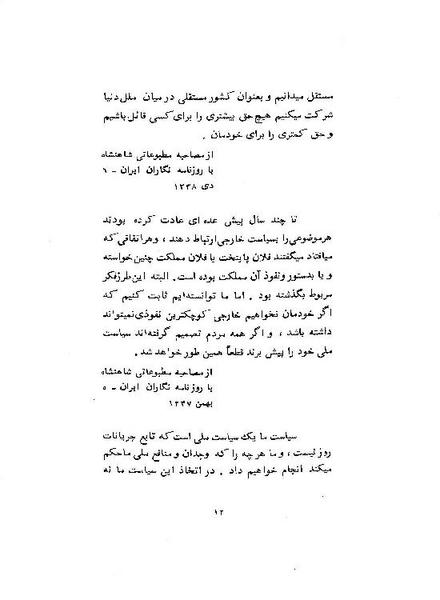 مستقل میدانیم و بعنوان کشور مستقلی در میان ملل دنیا
شرکت میکنیم هیچ حق بیشتری را برای کسی قائل باشیم
و حق کمتری را برای خودمان .
از مصاحبه مطبوعاتی شاهنشاه
با روزنامه نگاران ایران - ٦
دی ۱۳۳۸
تا چند سال پیش عده ای عادت کرده بودند
هر موضوعی را بسیاست خارجی ارتباط دهند ، و هر اتفاقی که
میافتاد میگفتند فلان پایتخت یا فلان مملکت چنین خواسته
و یا بدستور و نفوذ آن مملکت بوده است . البته این طرز فکر
مربوط بگذشته بود . اما ما توانسته‌ایم ثابت کنیم که
اگر خودمان نخواهیم خارجی کوچکترین نفوذی نمیتواند
داشته باشد ، و اگر همه مردم تصمیم گرفته‌اند سیاست
ملی خود را پیش برند قطعاً همین طور خواهد شد .
از مصاحبه مطبوعاتی شاهنشاه
با روزنامه نگاران ایران - ٥
بهمن ۱۳۳۷
سیاست ما یك سیاست ملی است که تابع جریانات
روز نیست ، و ما هر چه را که وجدان و منافع ملی ما حکم
میکند انجام خواهیم داد . در اتخاذ این سیاست ما نه
۱۲